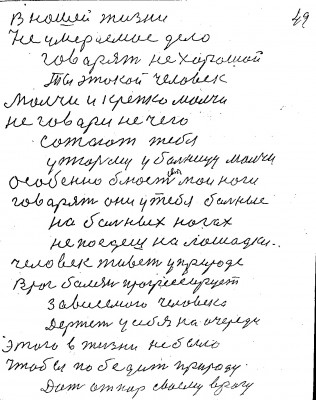 49
В нашей жизни
Не умераемое дело
говарят не харошой
Ты этокой человек
Молчи и крепко молчи
не говари не чего
сотают тебя
у тюрму у балницу молчи
особенно блюст мои ноги
говарят они у тебя балные
на балных ногах
не поедеш на лошадки..
человек живет у природе
Враг балям прогрессирует
Зависемого человека
Держет у себя на очереди
Этого в жизни не было
Чтобы победит природу
Дат отпор своему врагу